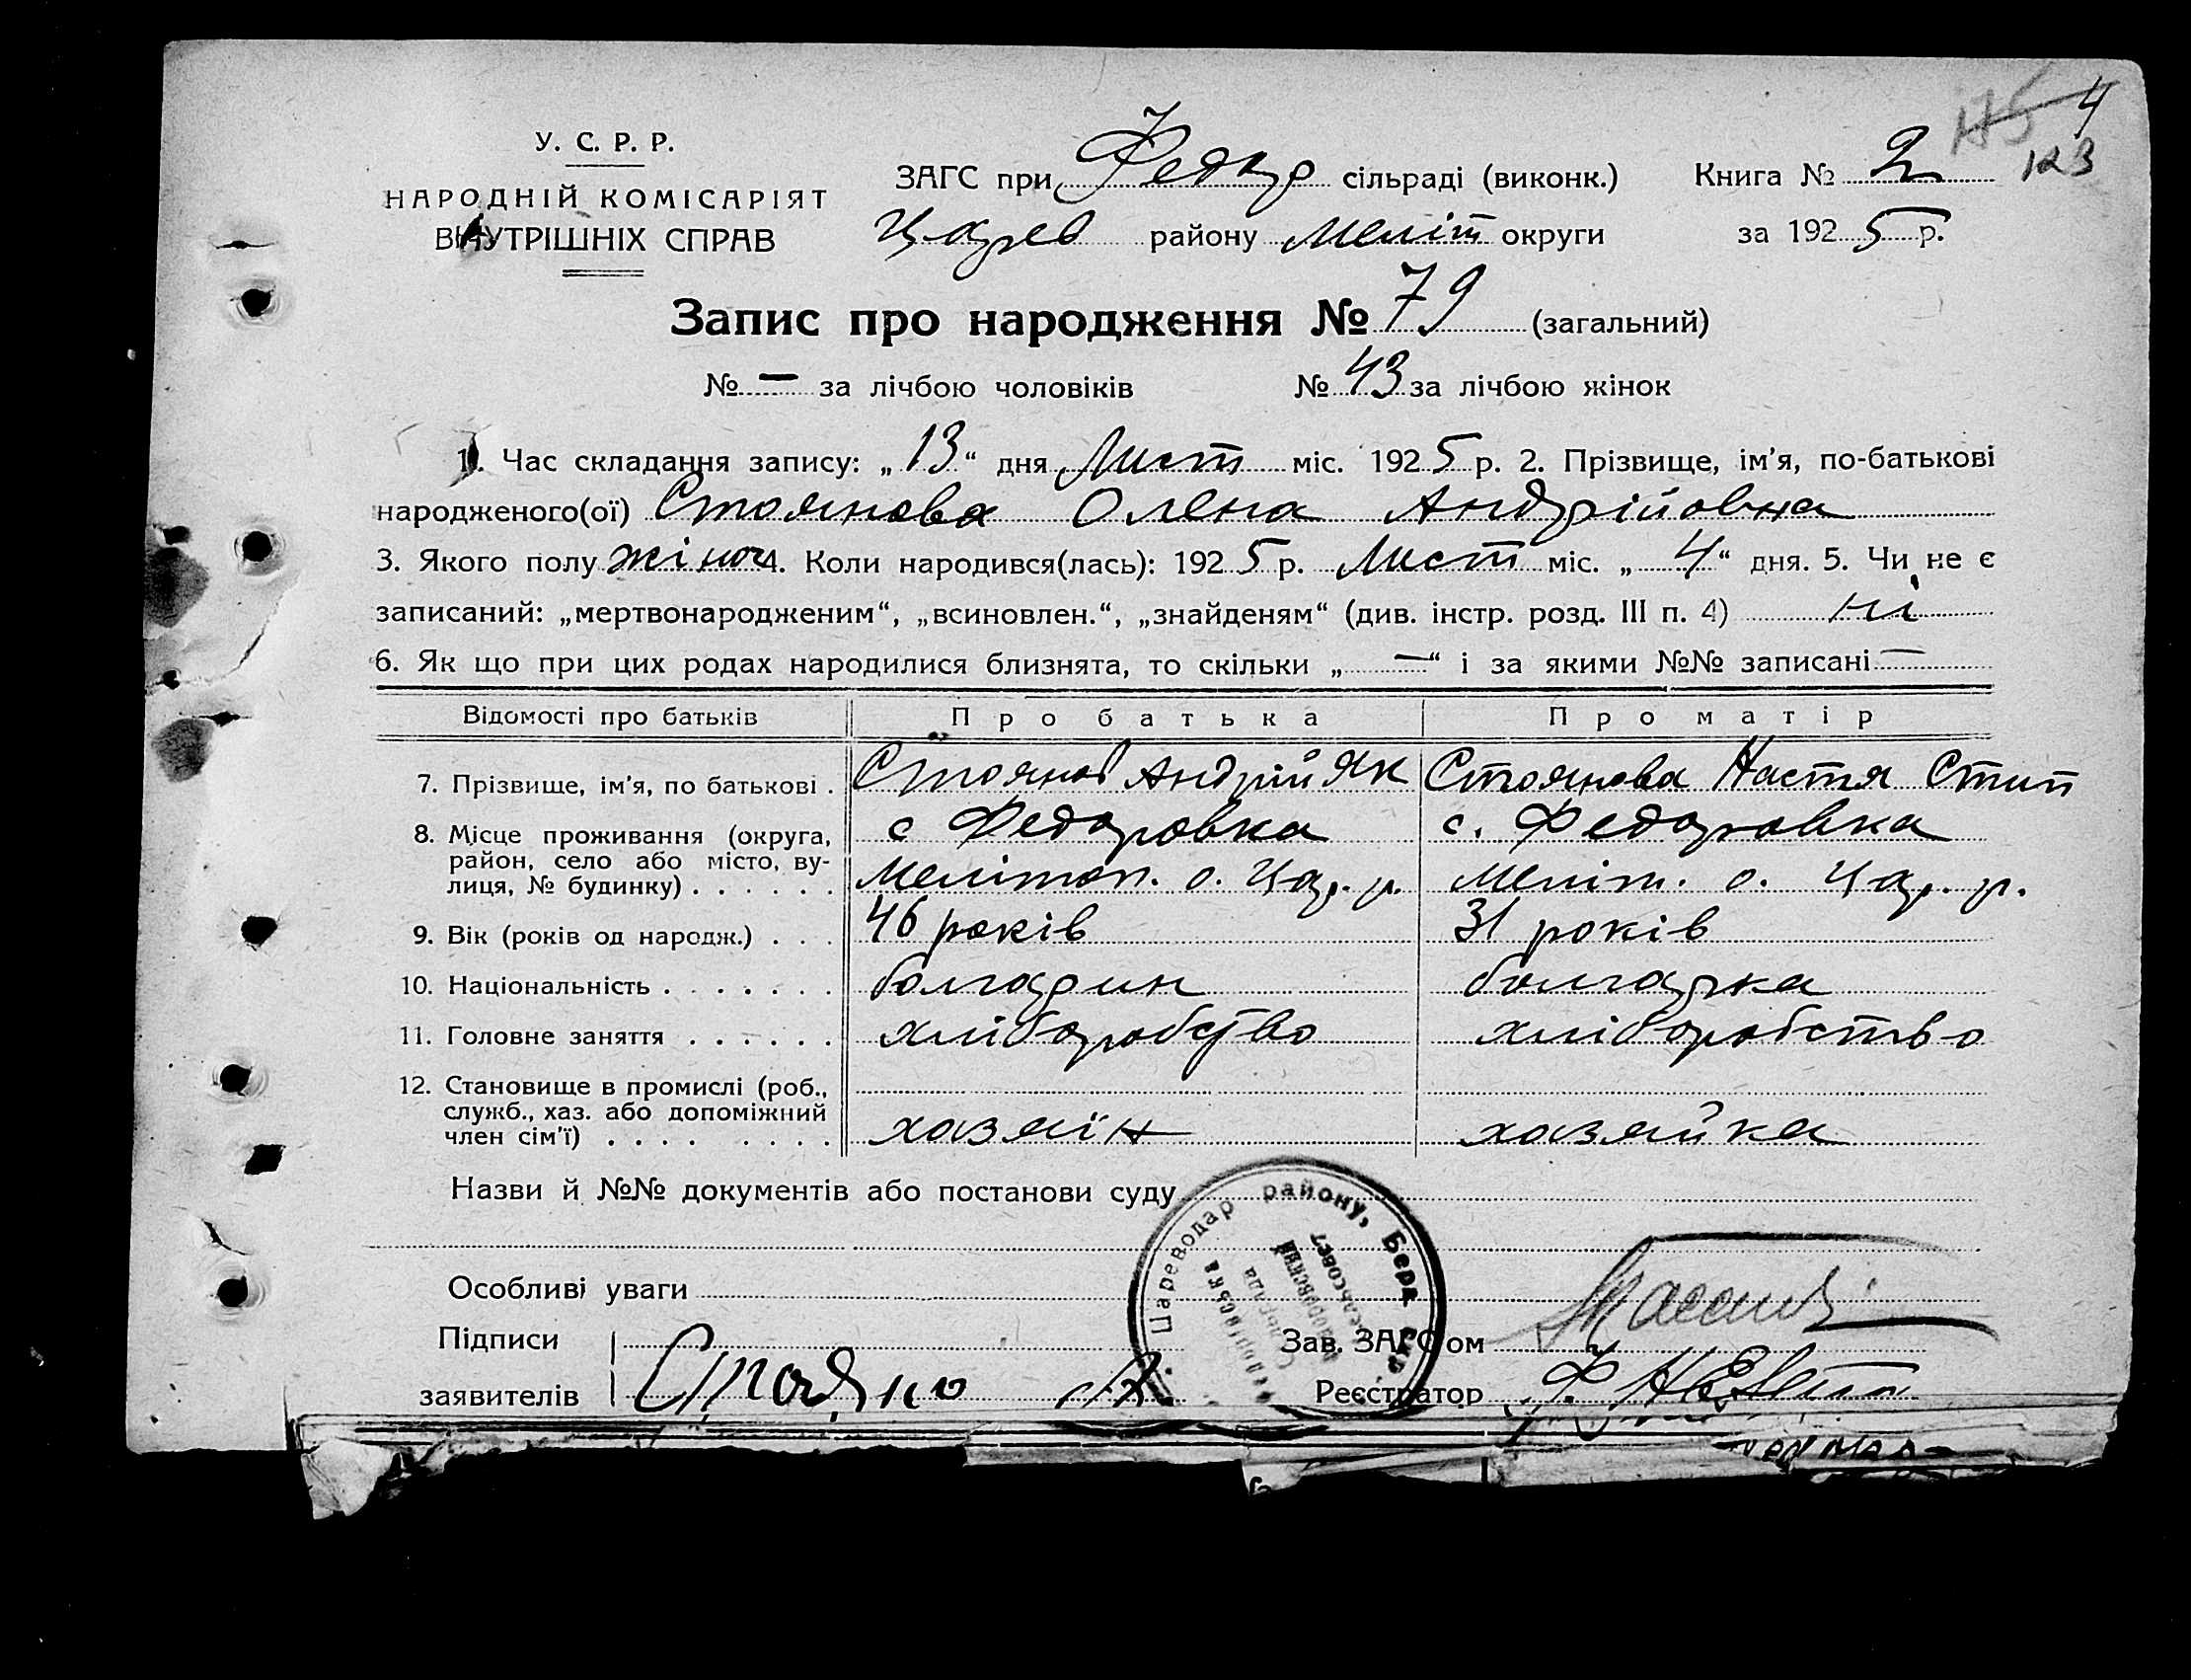 У. С. Р. Р.
НАРОДНІЙ КОМІСАРІЯТ
ВНУТРІШНІХ СПРАВ
ЗАГС при Федор сільраді (виконк.) Книга № 2
Царев району Меліт округи за 1925 р.
4
123
Запис про народження № 79 (загальний)
№ — за лічбою чоловіків № 43 за лічбою жінок
1. Час складання запису: „13“ дня Лист міс. 1925 р. 2. Прізвище, ім'я, по-батькові
народженого(ої) Стоянова Олена Андрійовна
3. Якого полу жіноч 4. Коли народився(лась): 1925 р. Лист міс. „4“ дня. 5. Чи не є
записаний: „мертвонародженим“, „всиновлен.“, „знайденям“ (див. інстр. розд. III п. 4) ні
6. Як що при цих родах народилися близнята, то скільки „—“ і за якими №№ записані —
Відомості про батьків Про батька Про матір
7. Прізвище, ім'я, по батькові . Стоянов Андрій Як Стоянова Настя Стип
8. Місце проживання (округа, с Федоровка с. Федоровка
район, село або місто, ву-
лиця, № будинку) . . . . . . Мелітоп. о. Цар. р. Меліт. о. Цар. р.
9. Вік (років од народж.) . . . 46 років 31 років
10. Національність . . . . . . . болгарин болгарка
11. Головне заняття . . . . . . хліборобство хліборобство
12. Становище в промислі (роб.,
служб., хаз. або допоміжний
член сім'ї) . . . . . . . . хазяїн хазяйка
Назви й №№ документів або постанови суду
Цареводар району, Берд окр.
Сільрада
сельсовет
Особливі уваги
Підписи Зав. ЗАГС'ом
заявителів Реєстратор